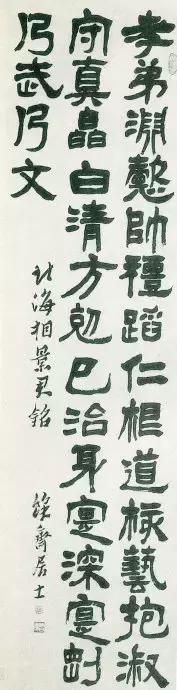 孝弟淵懿帥禮蹈仁根道核藝抱淑
守真皛白清方剋己治身寔深寔剛
乃武乃文
北海相景君銘
齋居士